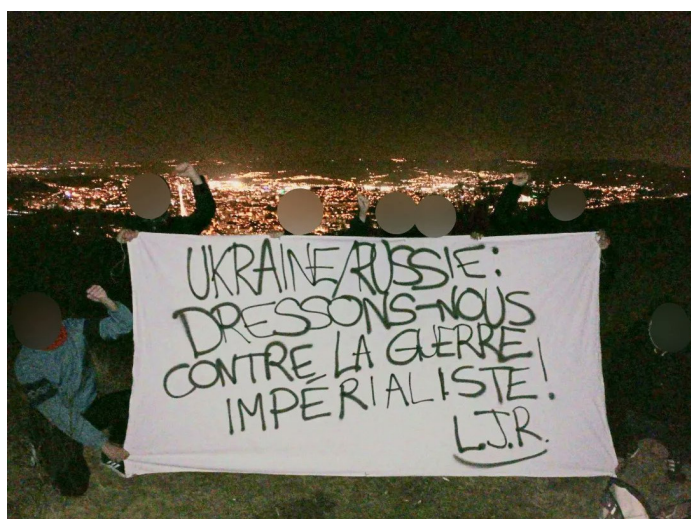 UKRAINE/RUSSIE:
DRESSONS-NOUS
CONTRE LA GUERRE
IMPÉRIALISTE!
L.J.R.